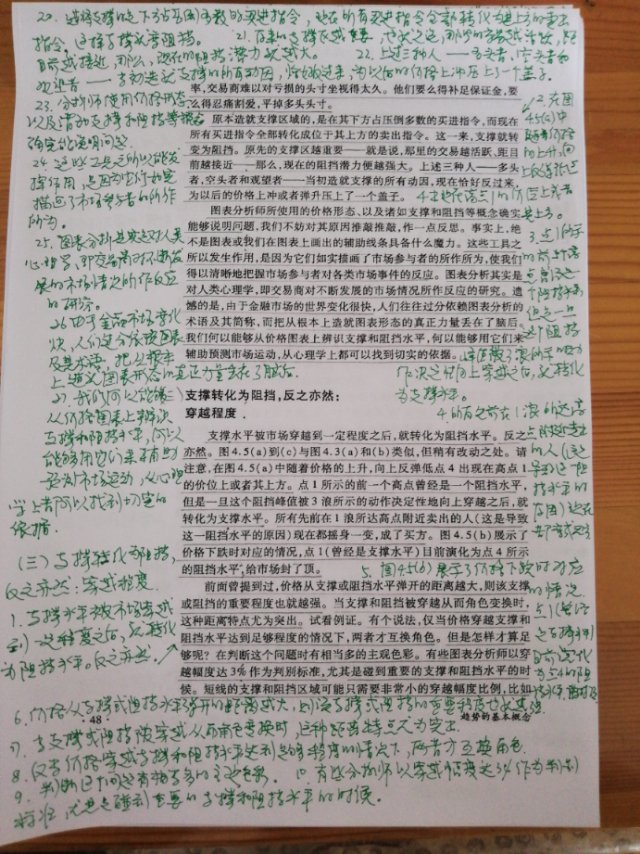 20. 这将支撑区之下方占压倒多数的买进指令，现在所有买进指令全部转化为其上方的卖出
指令。这样支撑成为阻挡。 21. 原来的支撑区越重要，也就是说，那里的交易越活跃，距
目前越接近，那么，现在的阻挡潜力就越大。 22. 上述三种人——多头者，空头者和
观望者——当初造就支撑的所有动因，恰好反过来，为以后的价格上冲压上了一个盖子。
23. 分析师使用价格形态
以及诸如支撑和阻挡等概念
确实能说明问题
24. 这些工具之所以能发
挥作用，是因为它们如实
描画了市场参与者的所作
所为。
25. 图表分析其实是对人类
心理学，即交易商对不断发
展的市场情况所作反应
的研究。
26. 由于金融市场变化
快，人们过分依赖图表
及其术语，把从根本
上造就图表形态的真正力量丢在了脑后。
27. 我们何以能够
从价格图表上辨识
支撑和阻挡水平，何以
能够用它们来辅助
预测市场运动，从心理
学上都可以找到切实的
依据。
(三) 支撑转化为阻挡，
反之亦然：穿越程度
1. 支撑水平被市场穿越
到一定程度之后，就转化
为阻挡水平。反之亦然。
率，交易商难以对亏损的头寸坐视得太久。他们要么得补足保证金，要
么得忍痛割爱，平掉多头头寸。
原本造就支撑区域的，是在其下方占压倒多数的买进指令，而现在
所有买进指令全部转化成位于其上方的卖出指令。这一来，支撑就转
变为阻挡。原先的支撑区越重要——就是说，那里的交易越活跃、距目
前越接近——那么，现在的阻挡潜力便越强大。上述三种人——多头
者，空头者和观望者——当初造就支撑的所有动因，现在恰好反过来，
为以后的价格上冲或者弹升压上了一个盖子。
图表分析师所使用的价格形态、以及诸如支撑和阻挡等概念确实
能够说明问题，我们不妨对其原因推敲推敲，作一点反思。事实上，绝
不是图表或我们在图表上画出的辅助线条具备什么魔力。这些工具之
所以发生作用，是因为它们如实描画了市场参与者的所作所为，使我们
得以清晰地把握市场参与者对各类市场事件的反应。图表分析其实是
对人类心理学，即交易商对不断发展的市场情况所作反应的研究。遗
憾的是，由于金融市场的世界变化很快，人们往往过分依赖图表分析的
术语及其简称，而把从根本上造就图表形态的真正力量丢在了脑后。
我们何以能够从价格图表上辨识支撑和阻挡水平，何以能够用它们来
辅助预测市场运动，从心理学上都可以找到切实的依据。
支撑转化为阻挡，反之亦然：
穿越程度
支撑水平被市场穿越到一定程度之后，就转化为阻挡水平。反之
亦然。图4.5(a)到(c)与图4.3(a)和(b)类似，但稍有改动之处。请
注意，在图4.5(a)中随着价格的上升，向上反弹低点4出现在高点1
的价位上或者其上方。点1所示的前一个高点曾经是一个阻挡水平，
但是一旦这个阻挡峰值被3浪所示的动作决定性地向上穿越之后，就
转化为支撑水平。所有先前在1浪所达高点附近卖出的人（这是导致
这一阻挡水平的原因）现在都摇身一变，成了买方。图4.5(b)展示了
价格下跌时对应的情况，点1(曾经是支撑水平)目前演化为点4所示
的阻挡水平，给市场封了顶。
前面曾提到过，价格从支撑或阻挡水平弹开的距离越大，则该支撑
或阻挡的重要程度也就越强。当支撑和阻挡被穿越从而角色变换时，
这种距离特点尤为突出。试看例证。有个说法，仅当价格穿越支撑和
阻挡水平达到足够程度的情况下，两者才互换角色。但是怎样才算足
够呢？在判断这个问题时有相当多的主观色彩。有些图表分析师以穿
越幅度达3%作为判别标准，尤其是碰到重要的支撑和阻挡水平的时
候。短线的支撑和阻挡区域可能只需要非常小的穿越幅度比例，比如
2. 在图
4.5(a)中
随着价格
的上升，向
上反弹低点
3. 点1所示
的前一个高
点曾经是
一个阻挡水平
但是一旦
这个阻挡
作决定性向上穿越之后，就转化
为支撑水平。
5. 图4.5(b)展示了价格下跌时对应
的情况
点1(曾经
是支撑水平)
目前演化
6. 价格从支撑或阻挡水平弹开的距离越大，则该支撑或阻挡的重要程度也就越强。
· 48 · 趋势的基本概念
7. 当支撑或阻挡被穿越从而角色变换时，这种距离特点尤为突出。
8. 仅当价格穿越支撑和阻挡水平达到足够程度的情况下，两者才互换角色。
9. 判断这个问题有相当多的主观色彩。 10. 有些分析师以穿越幅度达3%作为判别
标准，尤其是碰到重要的支撑和阻挡水平的时候。